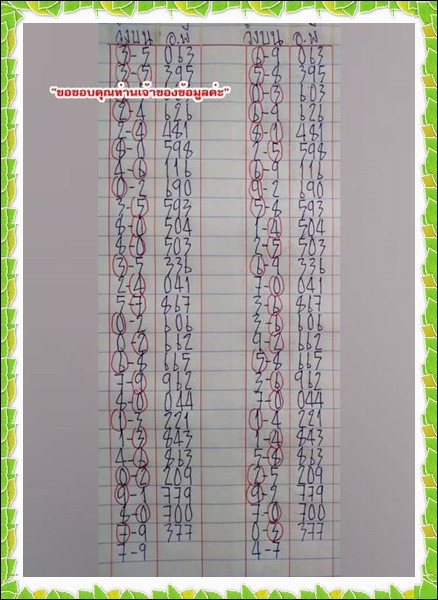 วิ่งบน อ.พี วิ่งบน อ.พี
3-5 063 6-9 063
3-5 395 5-8 395
603 0-3 603
"ขอขอบคุณท่านเจ้าของข้อมูลค่ะ"
2-4 626 6-9 626
2-4 481 8-1 481
4-8 598 2-5 598
4-6 116 6-9 116
0-2 690 9-2 690
3-5 593 5-8 593
8-0 504 1-4 504
8-0 503 2-5 503
3-5 336 6-9 336
2-4 041 7-0 041
5-7 867 3-6 867
0-2 606 3-6 606
0-2 662 9-2 662
6-8 665 5-8 665
7-9 962 3-6 962
4-0 044 7-0 044
1-3 221 1-4 221
1-3 843 1-4 843
4-6 863 5-8 863
0-2 209 2-5 209
9-1 779 9-2 779
8-0 700 7-0 700
7-9 377 0-3 377
7-9 4-7